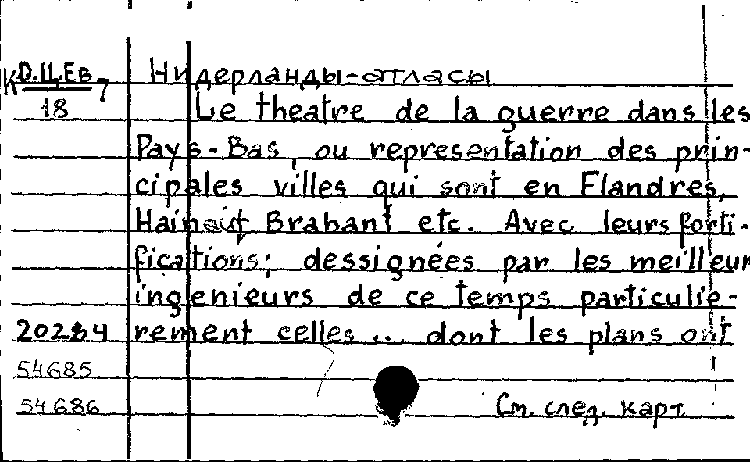 К О.Ц.Ев 7 Нидерланды-атласы
18 Le theatre de la guerre dans les
Pays-Bas, ou representation des prin-
cipales villes qui sont en Flandres,
Hainaut, Brabant etc. Avec leurs forti-
fications; dessignées par les meilleur
ingenieurs de ce temps particulie-
rement celles... dont les plans ont
54685
54686 См. след. карт